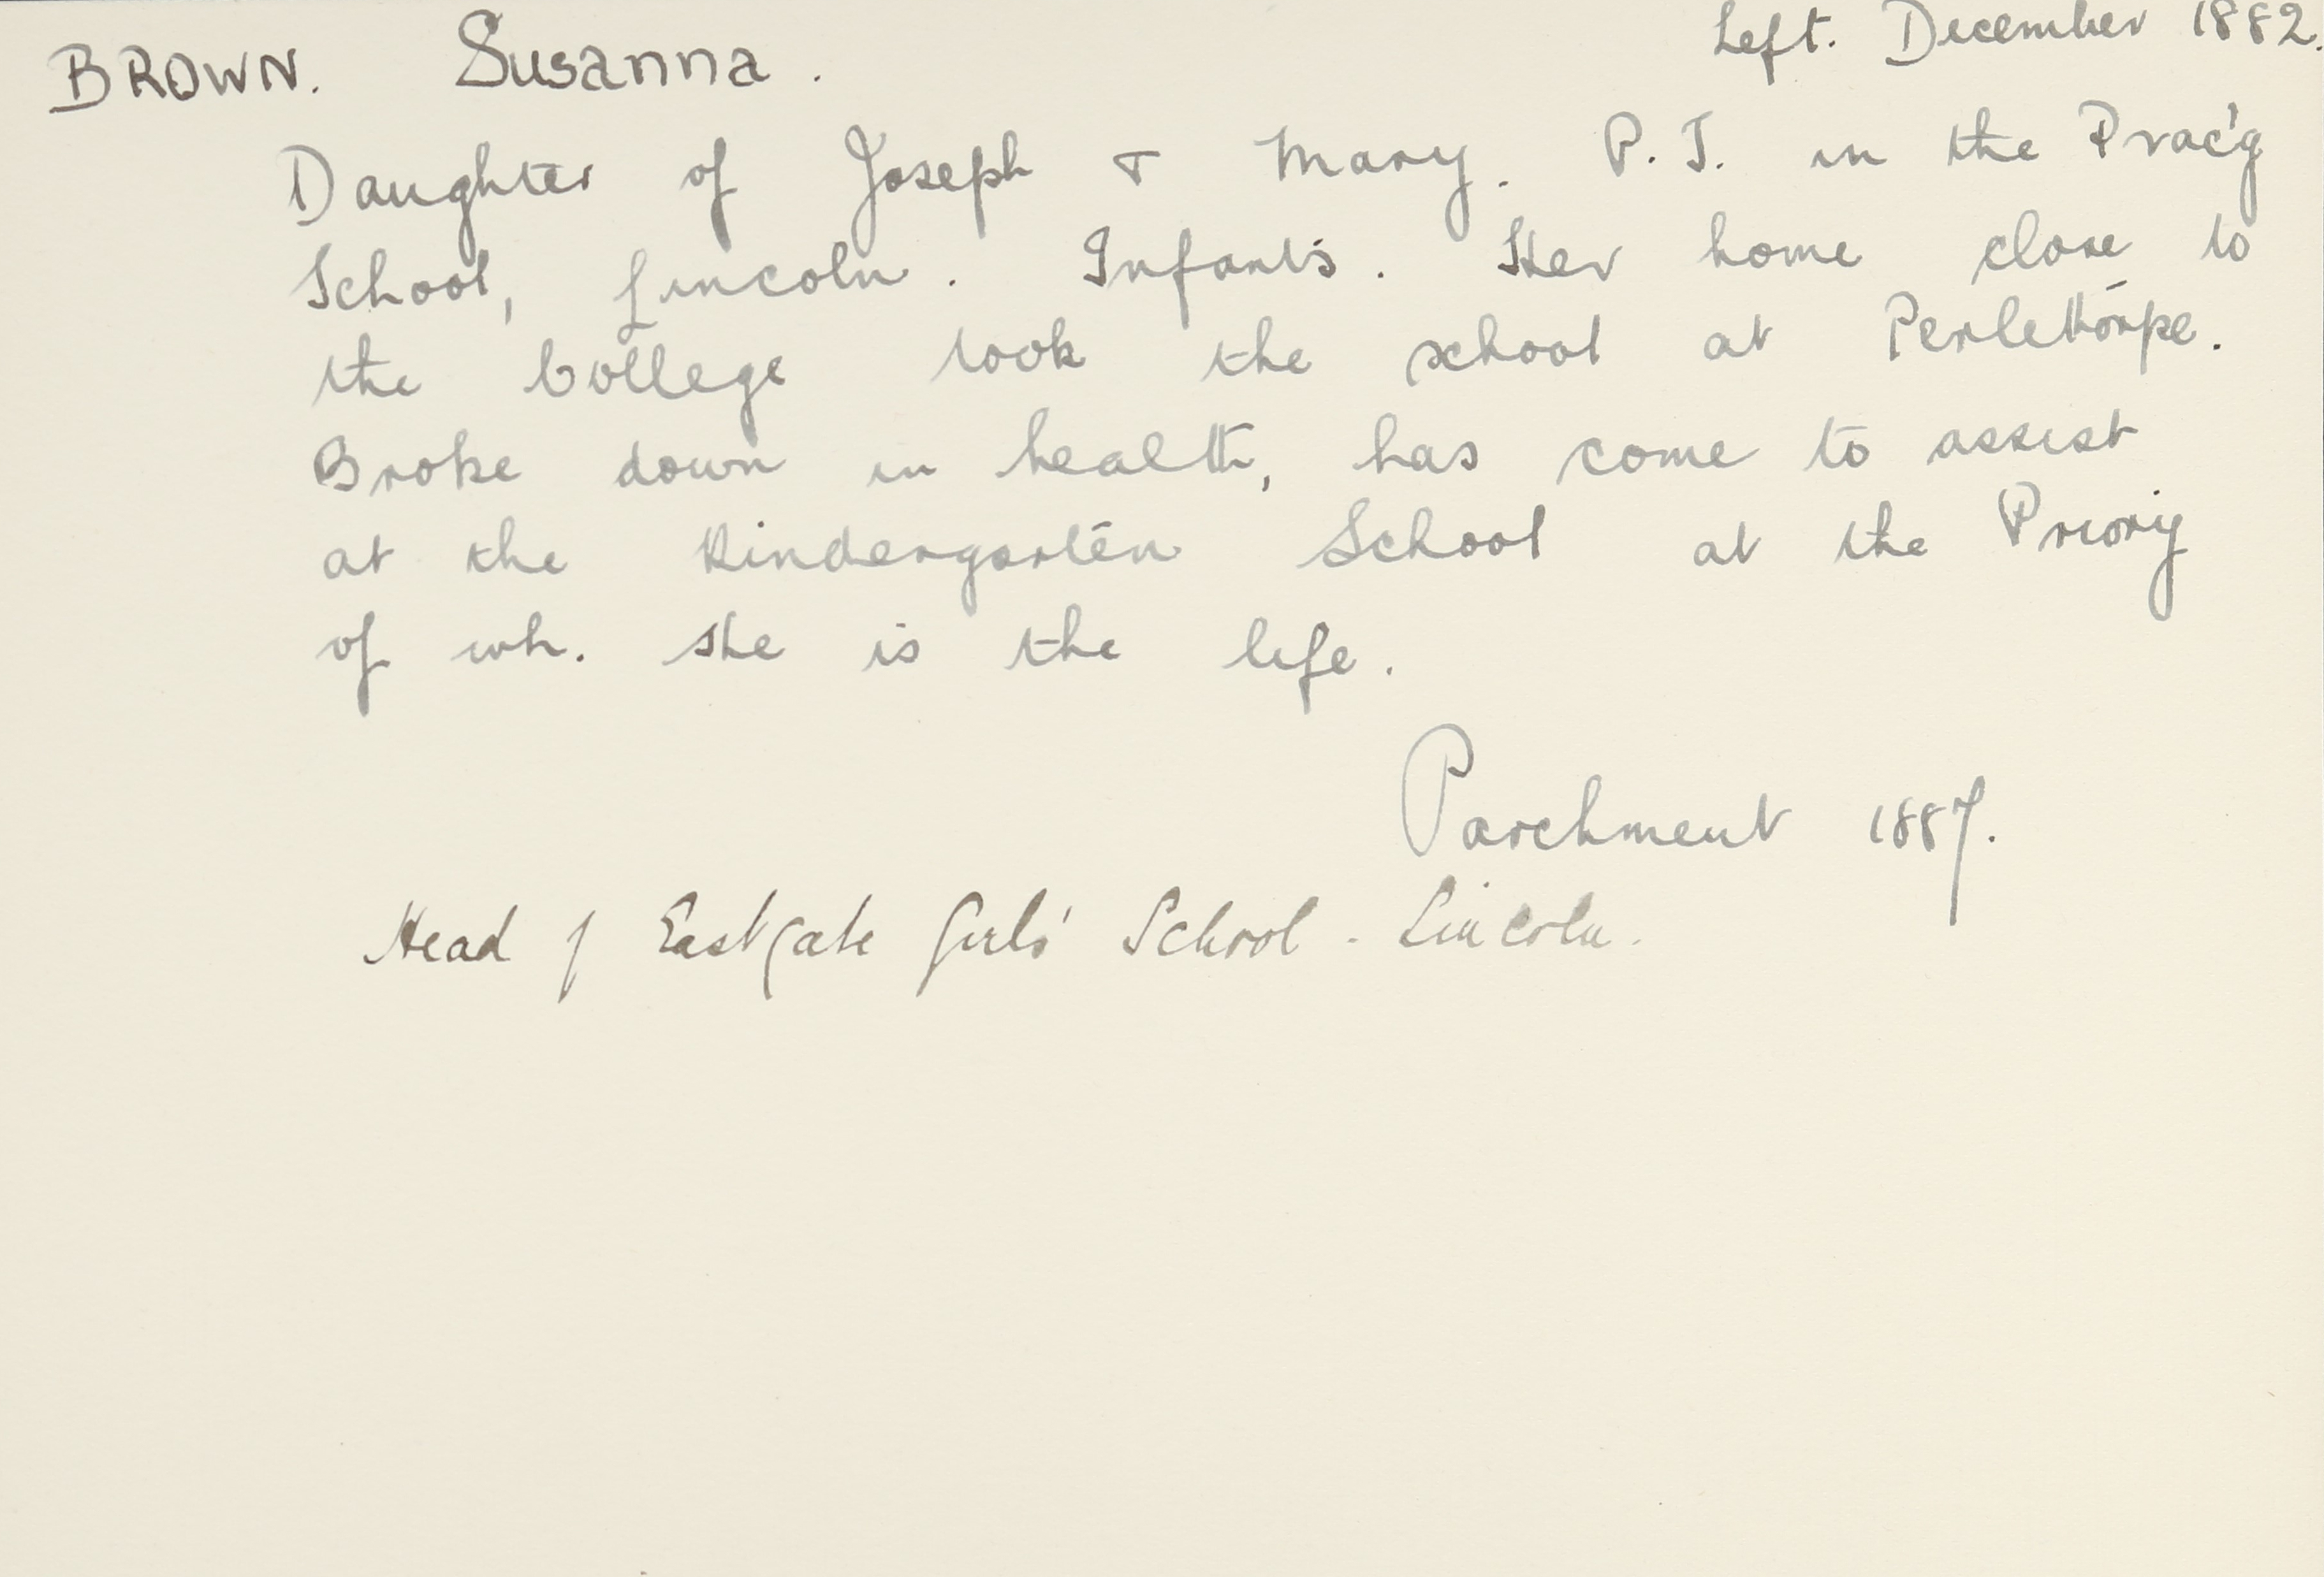 BROWN. Susanna. Left. December 1882.
Daughter of Joseph & Mary. P.T. in the Prac'g
School, Lincoln. Infants. Her home close to
the College took the school at Perlethorpe.
Broke down in health, has come to assist
at the Kindergarten School at the Priory
of wh. she is the life.
Parchment 1887.
Head of Eastgate Girls' School - Lincoln.